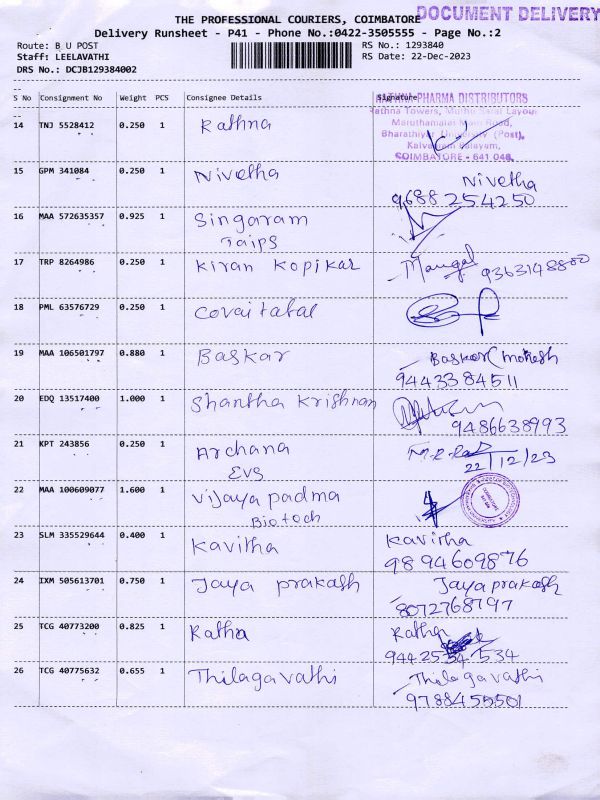 THE PROFESSIONAL COURIERS, COIMBATORE
DOCUMENT DELIVERY
Delivery Runsheet - P41 - Phone No.:0422-3505555 - Page No.:2
Route: B U POST
RS No.: 1293840
Staff: LEELAVATHI
RS Date: 22-Dec-2023
DRS No.: DCJB129384002
S No Consignment No Weight PCS Consignee Details Signature
RATHNA PHARMA DISTRIBUTORS
Rathna Towers, Layout
Maruthamalai Main Road,
Bharathiyar University (Post),
Kalveerampalayam,
COIMBATORE - 641 046.
14 TNJ 5528412 0.250 1 Rathna
15 GPM 341084 0.250 1 Nivetha Nivetha
9688 254250
16 MAA 572635357 0.925 1 Singaram
Taips
17 TRP 8264986 0.250 1 Kiran Kopikar Mangal 9363148880
18 PML 63576729 0.250 1 Covai tatal
19 MAA 106501797 0.880 1 Baskar Baskar
9443384511
20 EDQ 13517400 1.000 1 Shantha Krishnan
9486638993
21 KPT 243856 0.250 1 Archana
EVS 22/12/23
22 MAA 100609077 1.600 1 Vijaya padma
Biotech
23 SLM 335529644 0.400 1 Kavitha Kavitha
9894609876
24 IXM 505613701 0.750 1 Jaya prakash Jaya prakash
8072768797
25 TCG 40773200 0.825 1 Ratha Ratha
944253 534
26 TCG 40775632 0.655 1 Thilagavathi Thilagavathi
9788455501